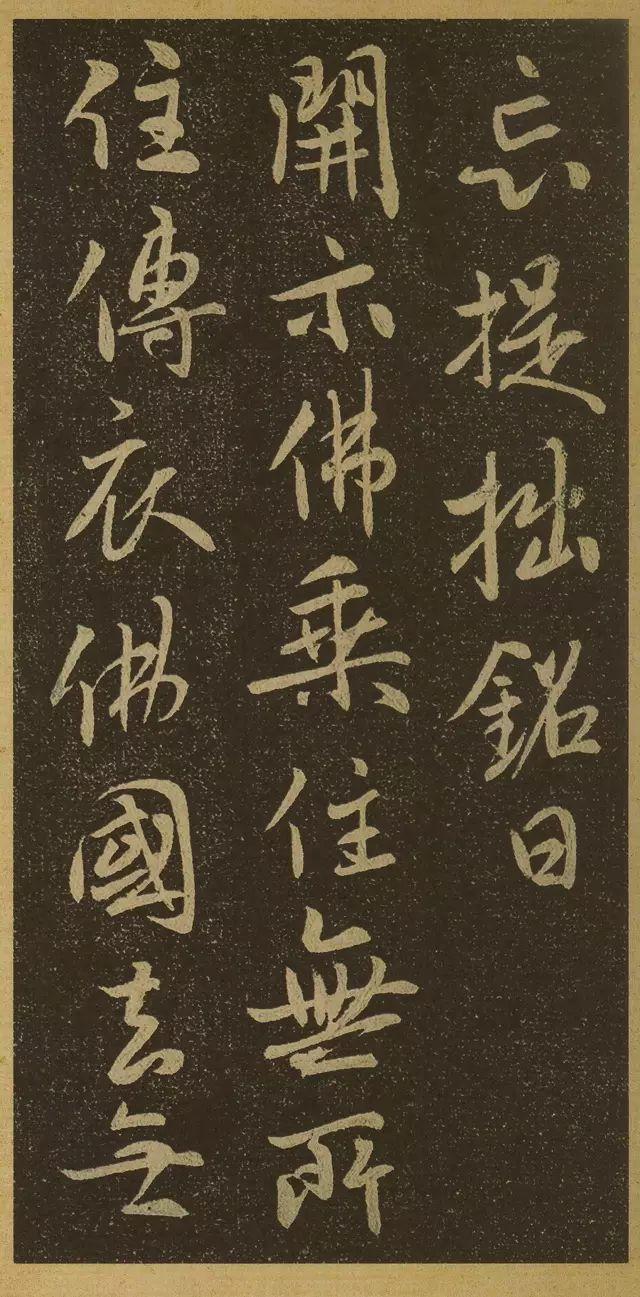 忘提拙銘曰
開示佛乗住無所
住傳衣佛國去無